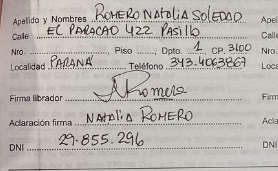 Apellido y Nombres ROMERO NATALIA SOLEDAD
Calle EL PARACAO 422 PASILLO
Nro. Piso Dpto. 1 CP. 3100
Localidad PARANÁ Teléfono 343.4063867
Firma librador Romero
Aclaración firma NATALIA ROMERO
DNI 29.855.296
Apel
Calle
Nro.
Loca
Firma
Aclar
DNI